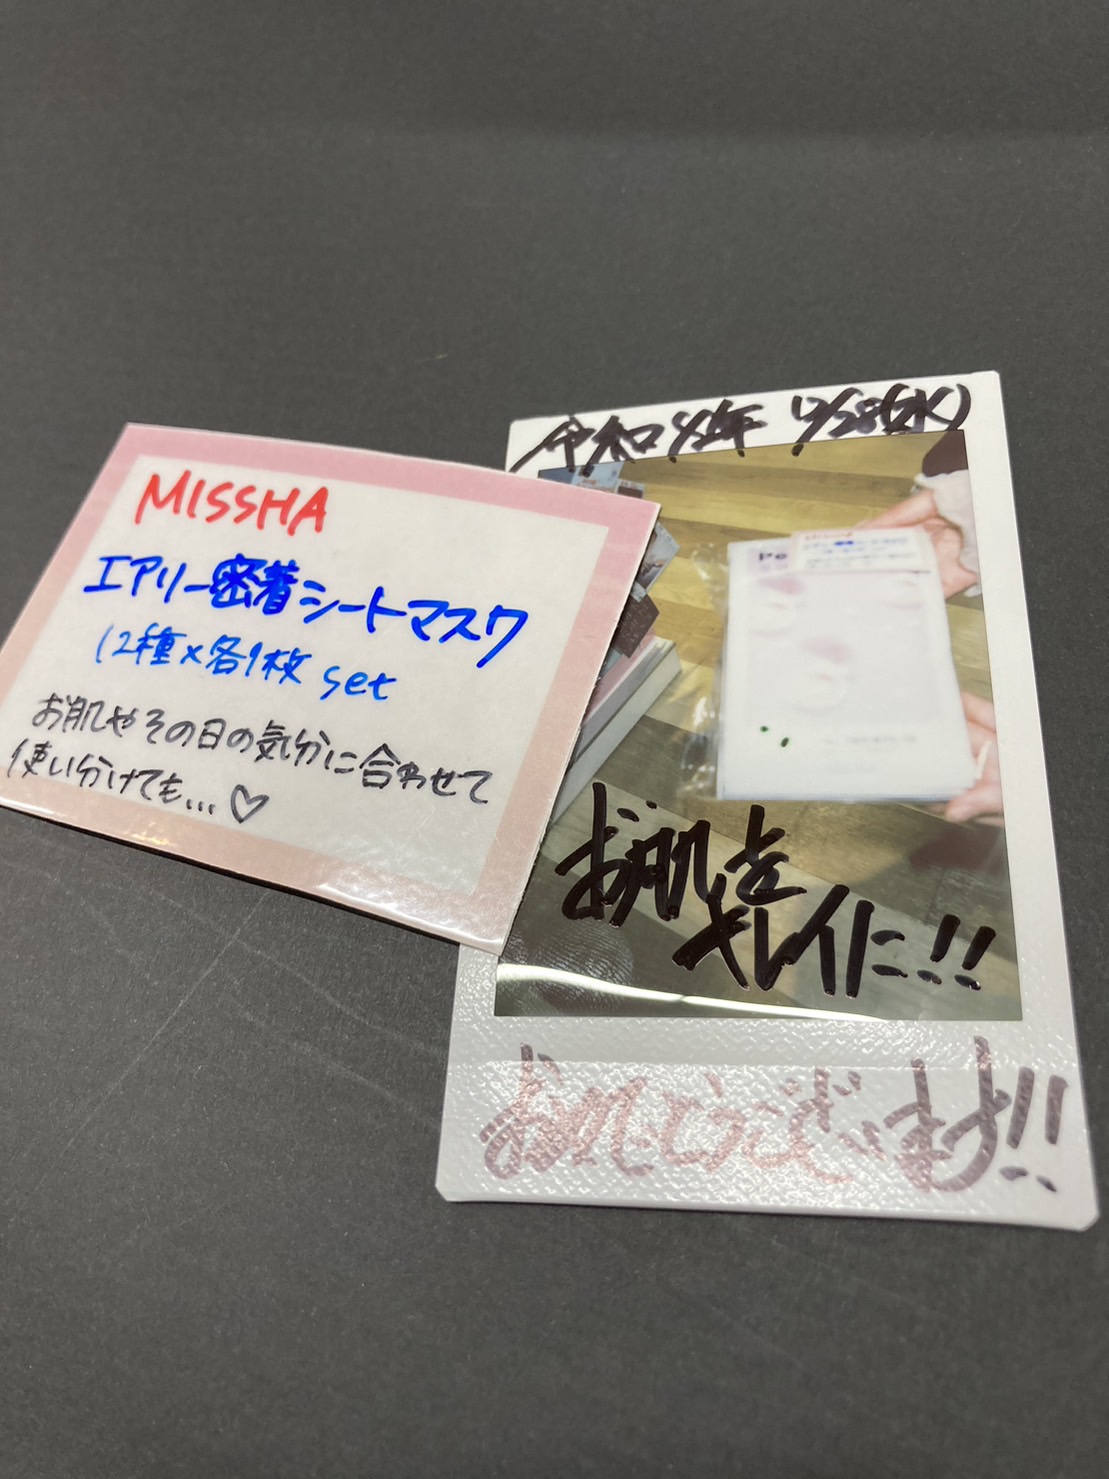 MISSHA
エアリー密着シートマスク
12種×各1枚 set
お肌やその日の気分に合わせて
使い分けても...♡
令和4年 12/28(水)
お肌を
キレイに!!
おめでとうございます!!